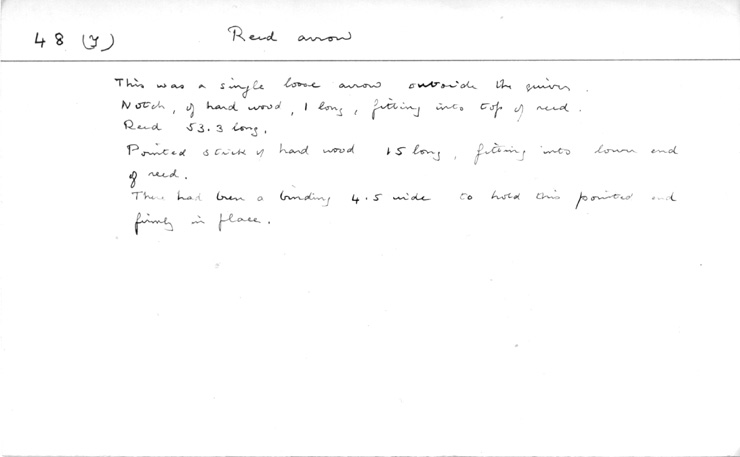 48 (J) Reed arrow
This was a single loose arrow outside the quiver.
Notch, of hard wood, 1 long, fitting into top of reed.
Reed 53.3 long.
Pointed stick of hard wood 15 long, fitting into lower end
of reed.
There had been a binding 4.5 wide to hold this pointed end
firmly in place.